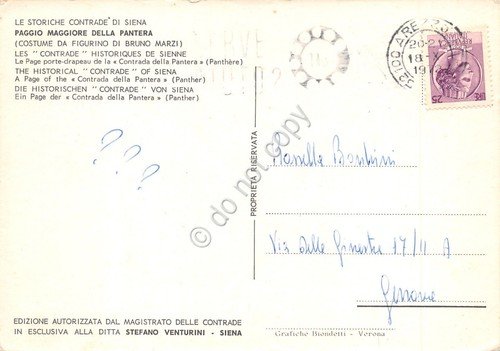 LE STORICHE CONTRADE DI SIENA
PAGGIO MAGGIORE DELLA PANTERA
(COSTUME DA FIGURINO DI BRUNO MARZI)
LES “CONTRADE” HISTORIQUES DE SIENNE
Le Page porte-drapeau de la « Contrada della Pantera » (Panthère)
THE HISTORICAL “CONTRADE” OF SIENA
A Page of the « Contrada della Pantera » (Panther)
DIE HISTORISCHEN “CONTRADE” VON SIENA
Ein Page der « Contrada della Pantera » (Panther)
? ? ?
EDIZIONE AUTORIZZATA DAL MAGISTRATO DELLE CONTRADE
IN ESCLUSIVA ALLA DITTA STEFANO VENTURINI - SIENA
PROPRIETÀ RISERVATA
do not copy
AREZZO
20-21
18-
19
25
Via delle Ginestre 17/11 A
Genova
Grafiche Biondetti - Verona